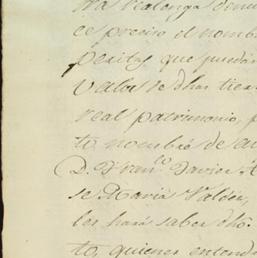 ce preciso el nomb
peritos que puedan
valor de dhas tier
real patrimonio, p
to nombró de a
D. Franco. Javier
se María Valdés,
les hará saber dho
to, quienes entend